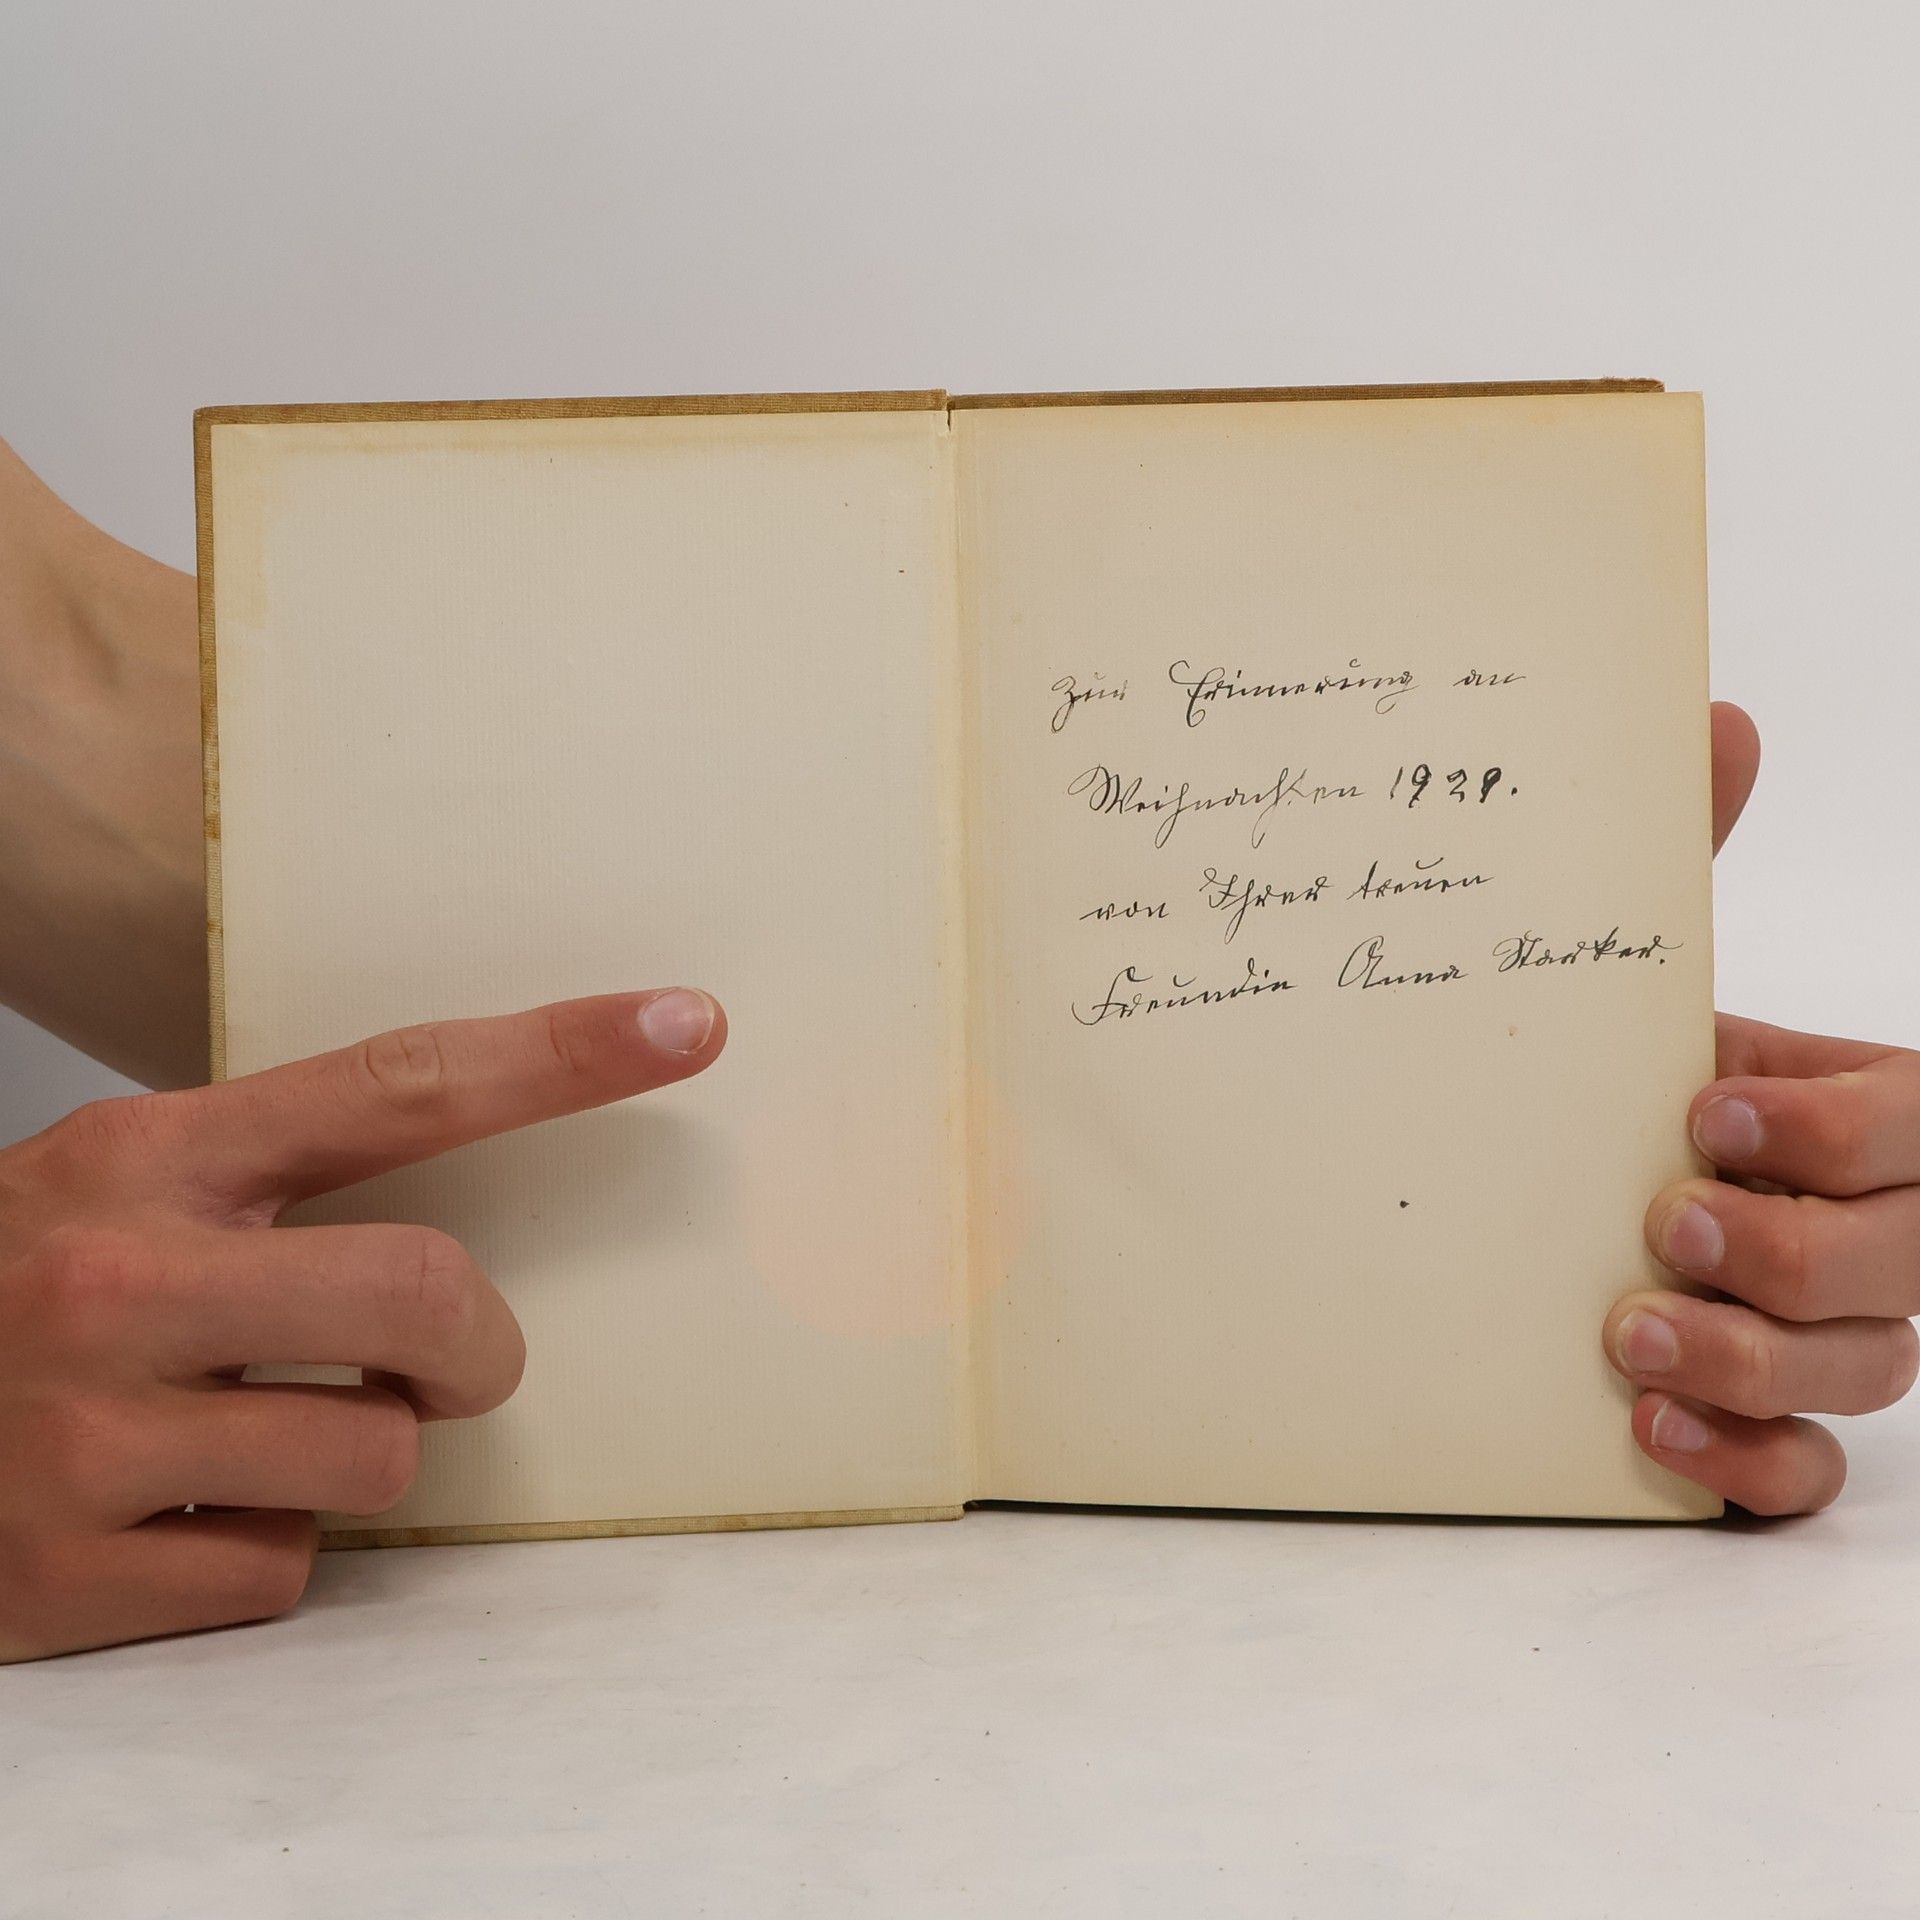 Zur Erinnerung an
Weihnachten 1929.
von Ihrer treuen
Freundin Anna Starker.